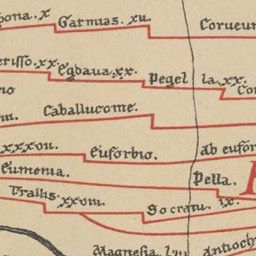 pona. x Garmias. xv. Corueun
erisso. xx. Egdaua. xx. Pegella. xx. Con
no
m. Caballucome.
xxxxvii. Eusorbio. ab eusor
Eumenia. Pella.
Trallis. xxvm. Socratu. ix.
Magnesia. lxv Antioch